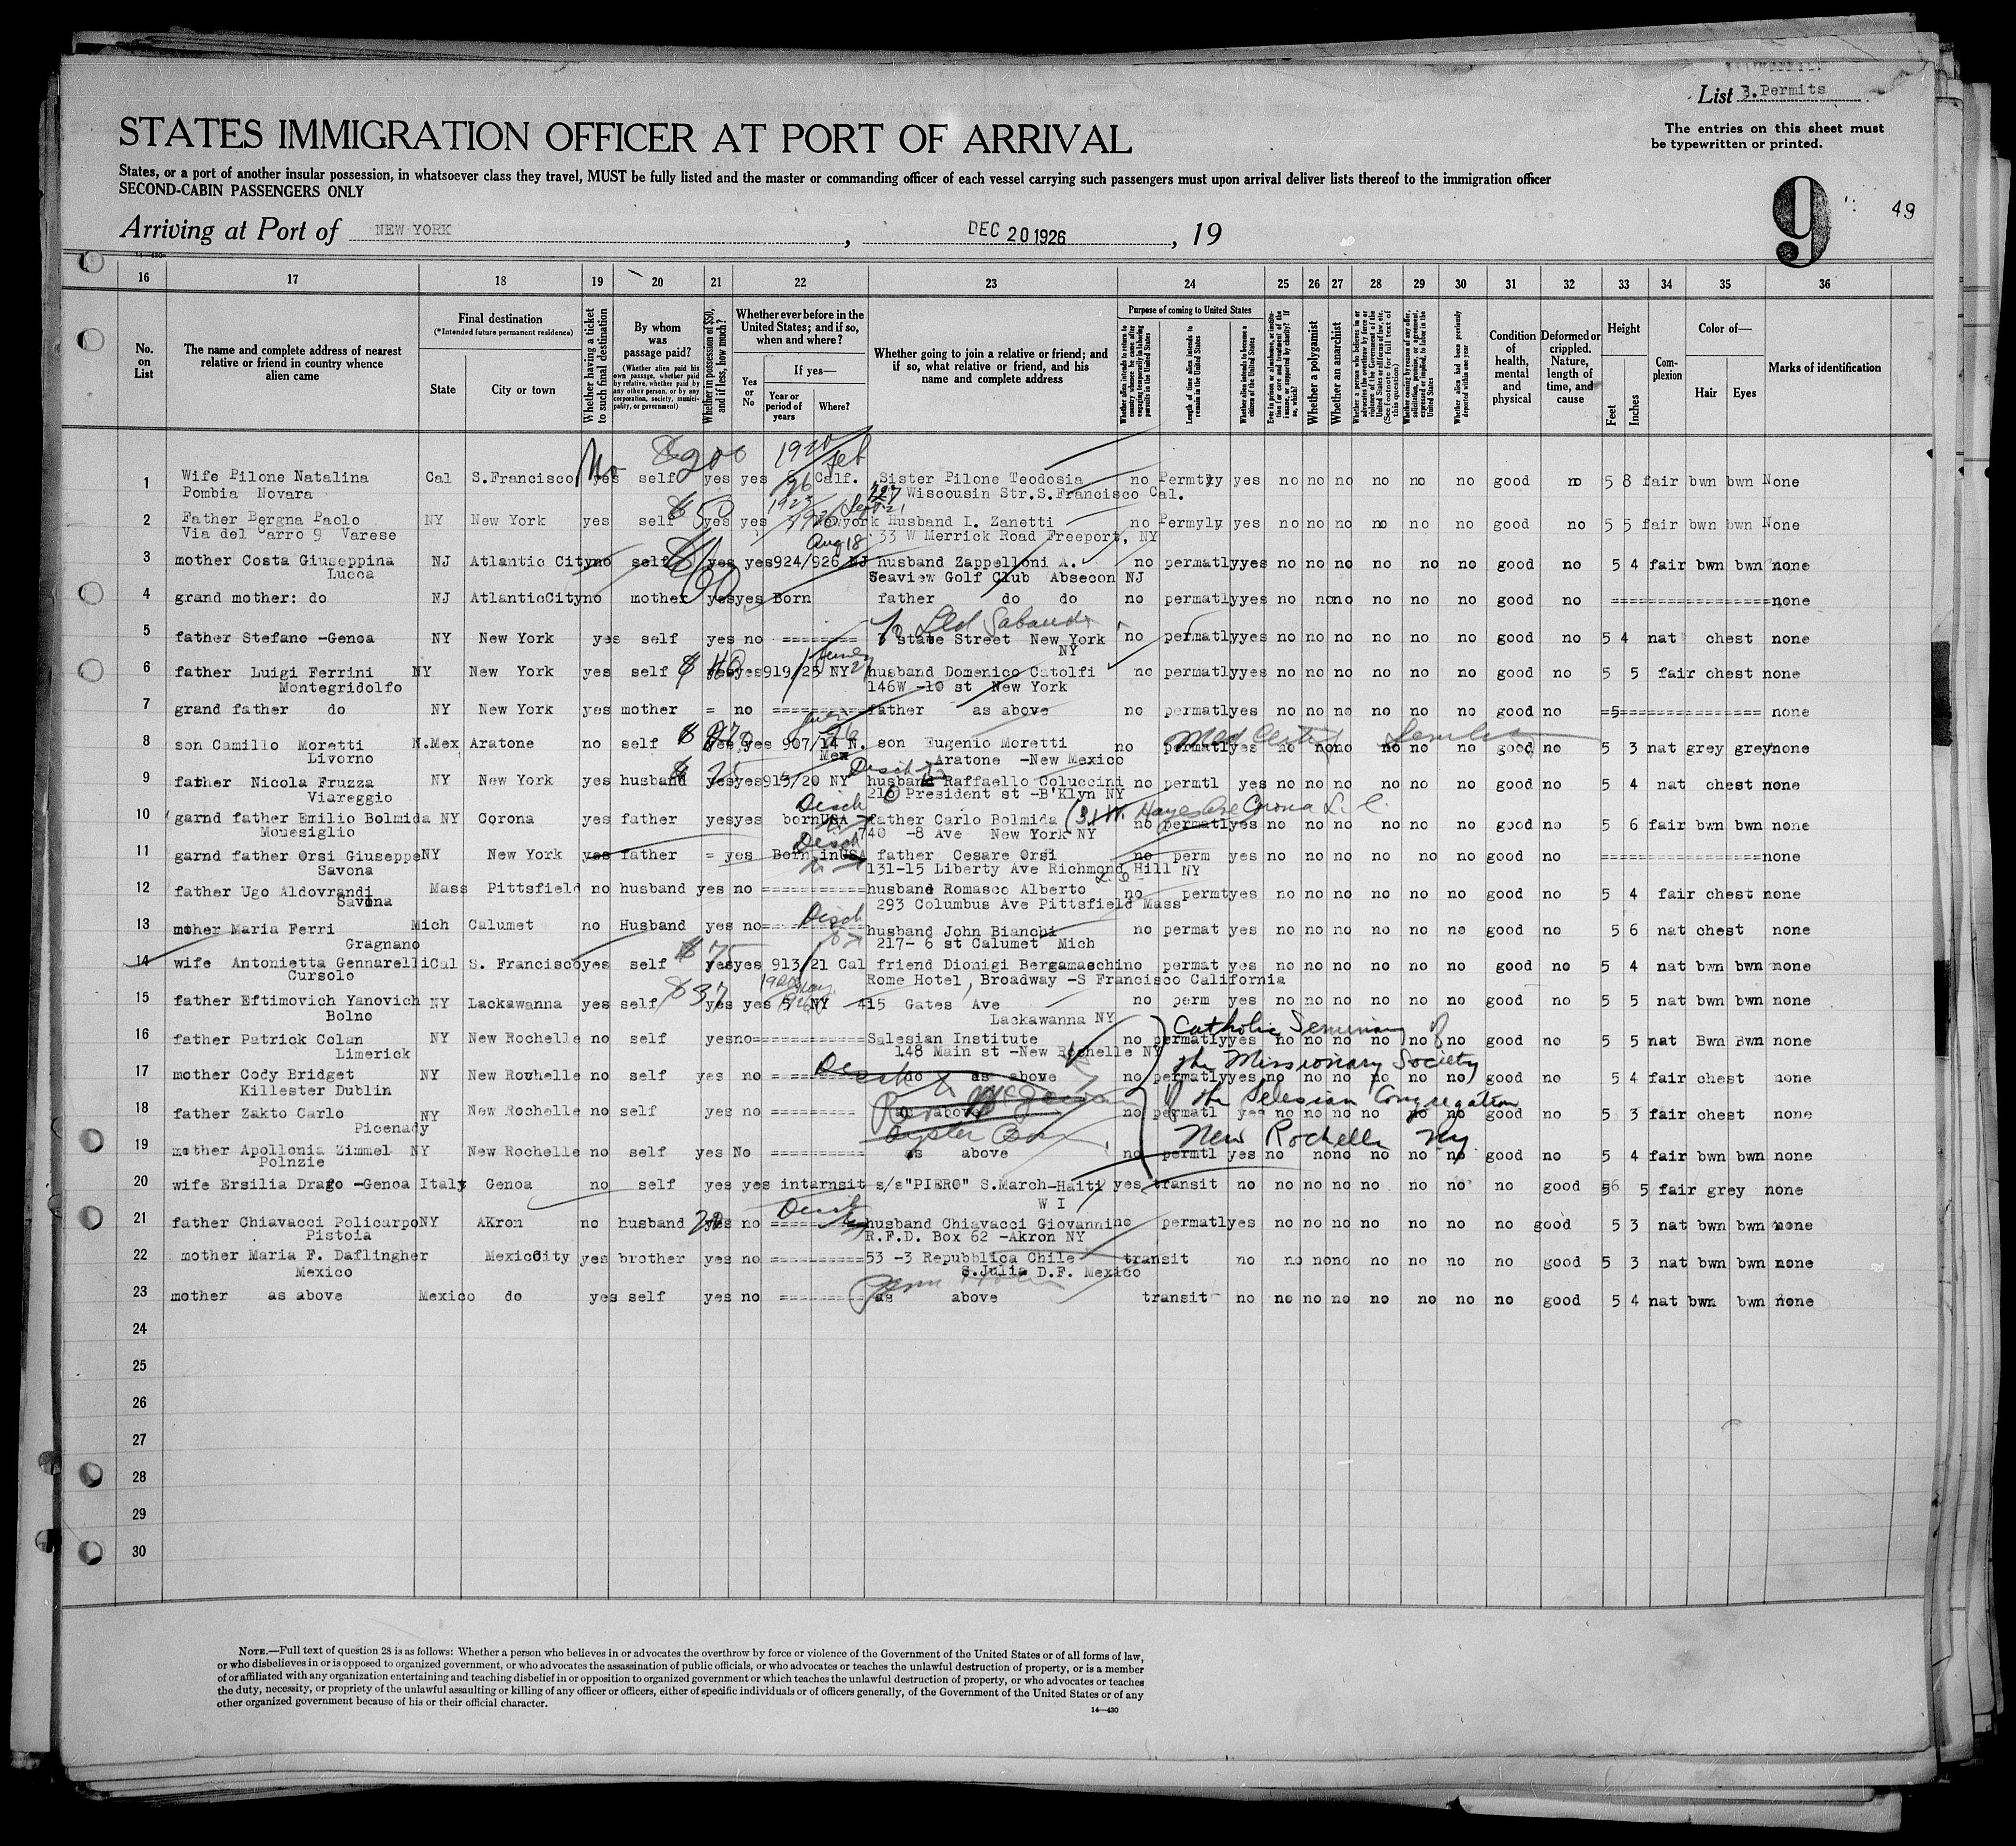 List 3.Permits
The entries on this sheet must
be typewritten or printed.
STATES IMMIGRATION OFFICER AT PORT OF ARRIVAL
States, or a port of another insular possession, in whatsoever class they travel, MUST be fully listed and the master or commanding officer of each vessel carrying such passengers must upon arrival deliver lists thereof to the immigration officer
SECOND-CABIN PASSENGERS ONLY
9 49
Arriving at Port of NEW YORK, DEC 20 1926, 19
16 17 18 19 20 21 22 23 24 25 26 27 28 29 30 31 32 33 34 35 36
No. on List
The name and complete address of nearest relative or friend in country whence alien came
Final destination
(*Intended future permanent residence)
State
City or town
Whether having a ticket to such final destination
By whom was passage paid?
(Whether alien paid his own passage, whether paid by relative, whether paid by any other person, or by any corporation, society, municipality, or government)
Whether in possession of $50, and if less, how much?
Whether ever before in the United States; and if so, when and where?
Yes or No
If yes—
Year or period of years
Where?
Whether going to join a relative or friend; and if so, what relative or friend, and his name and complete address
Purpose of coming to United States
Whether alien intends to return to country whence he came after engaging temporarily in laboring pursuits in the United States
Length of time alien intends to remain in the United States
Whether alien intends to become a citizen of the United States
Whether a polygamist
Whether an anarchist
Whether alien had been previously deported within one year
Condition of health, mental and physical
Deformed or crippled. Nature, length of time, and cause
Height
Feet
Inches
Complexion
Color of—
Hair
Eyes
Marks of identification
No $200 1920 Feb
1 Wife Pilone Natalina Cal S.Francisco yes self yes yes 26 Calf. Sister Pilone Teodosia no Permtly yes no no no no no no good no 5 8 fair bwn bwn None
Pombia Novara 727 Wiscousin Str.S.Francisco Cal.
2 Father Bergna Paolo NY New York yes self $50 yes yes 1923 1926 Newyork Husband I. Zanetti no Permyly yes no no no no no no good no 5 5 fair bwn bwn None
Via del Carro 9 Varese 33 W Merrick Road Freeport, NY
Aug 18
3 mother Costa Giuseppina NJ Atlantic City no self $60 yes yes 924/926 NJ husband Zappelloni A. no permatly yes no no no no no no good no 5 4 fair bwn bwn none
Lucca Seaview Golf Club Absecon NJ
4 grand mother: do NJ AtlanticCity no mother yes yes Born father do do no permatly yes no no no no no no good no ================== none
5 father Stefano -Genoa NY New York yes self yes no ======== Lld Sabaudo state Street New York no permatly yes no no no no no no good no 5 4 nat chest none
NY
6 father Luigi Ferrini NY New York yes self $40 yes yes 919/25 NY June husband Domenico Catolfi no permatly yes no no no no no no good no 5 5 fair chest none
Montegridolfo 146W -10 st New York
7 grand father do NY New York yes mother = no ========== father as above no permatly yes no no no no no no good no =5=============== none
8 son Camillo Moretti N.Mex Aratone no self yes yes 907/14 N. son Eugenio Moretti no permatly yes no no no no no no good no 5 3 nat grey grey none
Livorno Mex Aratone -New Mexico
Med Certif
9 father Nicola Fruzza NY New York yes husband $25 yes yes 913/20 NY Disch husband Raffaello Coluccini no permtl yes no no no no no no good no 5 4 nat chest none
Viareggio 216 President st -B'Klyn NY
Disch Hayes Ave Corona L. I.
10 garnd father Emilio Bolmida NY Corona yes father yes yes born USA father Carlo Bolmida no permatly yes no no no no no no good no 5 6 fair bwn bwn none
Mouesiglio 740 -8 Ave New York NY
Disch
11 garnd father Orsi Giuseppe NY New York yes father = yes Born inUSA father Cesare Orsi no perm yes no no no no no no good no ================ none
Savona 131-15 Liberty Ave Richmond Hill NY
L. I.
12 father Ugo Aldovrandi Mass Pittsfield no husband yes no =========== husband Romasco Alberto no permt yes no no no no no no good no 5 4 fair chest none
Savona 293 Columbus Ave Pittsfield Mass
13 mother Maria Ferri Mich Calumet no Husband yes no ========== Disch husband John Bianchi no permat yes no no no no no no good no 5 6 nat chest none
Gragnano 217- 6 st Calumet Mich
14 wife Antonietta Gennarelli Cal S. Francisco yes self $75 yes yes 913/21 Cal friend Dionigi Bergamaschi no permat yes no no no no no no good no 5 4 nat bwn bwn none
Cursolo Rome Hotel, Broadway -S Francisco California
15 father Eftimovich Yanovich NY Lackawanna yes self $37 yes yes NY 415 Gates Ave no perm yes no no no no no no good no 5 5 nat bwn bwn none
Bolno Lackawanna NY
16 father Patrick Colan NY New Rochelle no self yes no ============ Salesian Institute no permatly yes no no no no no no good no 5 5 nat Bwn Bwn none
Limerick 148 Main st -New Rochelle NY
Catholic Seminary of
the Missionary Society
17 mother Cody Bridget NY New Rouhelle no self yes no ========= do as above no permatly yes no no no no no no good no 5 4 fair chest none
Killester Dublin
of the Selesian Congregation
18 father Zakto Carlo NY New Rochelle no self yes no ========= as above no permatl yes no no no no no no good no 5 3 fair chest none
Picenady Oyster Bay
New Rochelle NY
19 mother Apollonia Zimmel NY New Rochelle no self yes No ========== as above no permtl yes no no no no no no good no 5 4 fair bwn bwn none
Polnzie
20 wife Ersilia Drago -Genoa Italy Genoa no self yes yes intarnsit s/s"PIERO" S.March-Haiti yes transit no no no no no no no no good 5 5 fair grey none
W I
21 father Chiavacci Policarpo NY AKron no husband 20 yes no ======== husband Chiavacci Giovanni no permatly yes no no no no no no good 5 3 nat bwn bwn none
Pistoia R.F.D. Box 62 -Akron NY
22 mother Maria F. Daflingher MexicCity yes brother yes no ========== 53 -3 Repubblica Chile transit no no no no no no no no good 5 3 nat bwn bwn none
Mexico S.Julia D.F. Mexico
23 mother as above Mexico do yes self yes no ========= as above transit no no no no no no no no good 5 4 nat bwn bwn none
24
25
26
27
28
29
30
NOTE.—Full text of question 28 is as follows: Whether a person who believes in or advocates the overthrow by force or violence of the Government of the United States or of all forms of law,
or who disbelieves in or is opposed to organized government, or who advocates the assassination of public officials, or who advocates or teaches the unlawful destruction of property, or is a member
of or affiliated with any organization entertaining and teaching disbelief in or opposition to organized government or which teaches the unlawful destruction of property, or who advocates or teaches
the duty, necessity, or propriety of the unlawful assaulting or killing of any officer or officers, either of specific individuals or of officers generally, of the Government of the United States or of any
other organized government because of his or their official character.
14—430